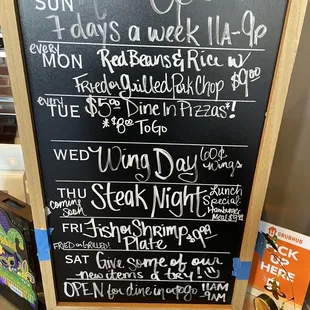 SUN
7 days a week 11A-9p
every
MON Red Beans & Rice w/
Fried or Grilled Pork Chop $9.00
every
TUE $5.00 Dine In Pizzas*!
*$8.00 To Go
WED Wing Day 60¢ wings
THU Steak Night Lunch Special:
coming soon Hamburger Meal $9.99
FRI Fish or Shrimp $9.99
FRIED OR GRILLED! Plate
SAT Give some of our
new items a try!
OPEN for dine in or to go 11AM
9AM
GRUBHUB
PICK
UP
HERE